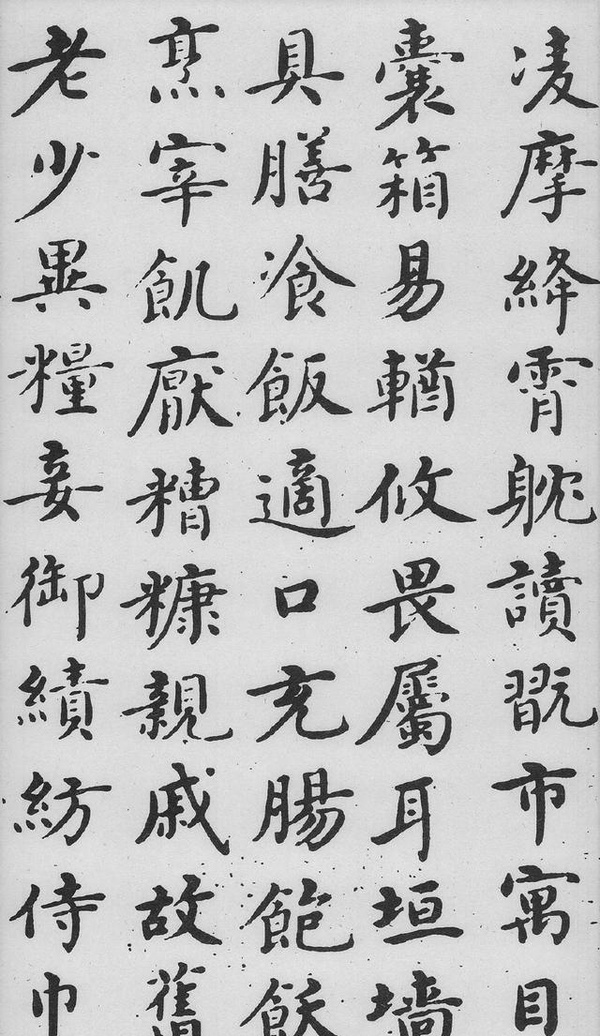 凌摩絳霄耽讀翫市寓目
囊箱易輶攸畏屬耳垣墻
具膳飡飯適口充腸飽飫
烹宰飢厭糟糠親戚故舊
老少異糧妾御績紡侍巾